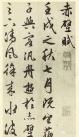 赤壁賦
壬戌之秋七月既望蘇
子與客汎舟遊於赤壁
之下清風徐來水波